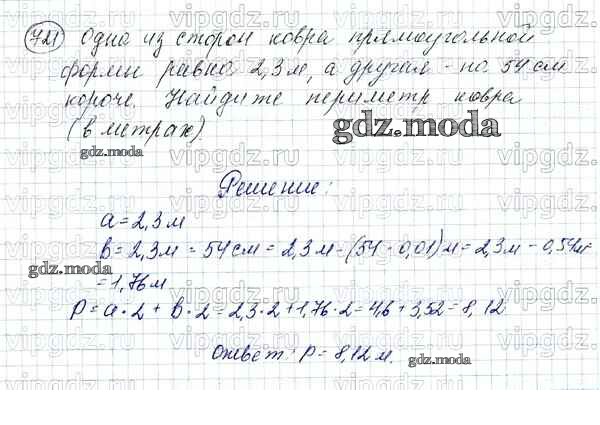 721 Одна из сторон ковра прямоугольной
формы равна 2,3 м, а другая - на 54 см
короче. Найдите периметр ковра
(в метрах)
gdz.moda
gdz.moda
Решение:
a = 2,3 м
в = 2,3 м = 54 см = 2,3 м - (54 · 0,01) м = 2,3 м - 0,54 м
gdz.moda
= 1,76 м
P = a · 2 + в · 2 = 2,3 · 2 + 1,76 · 2 = 4,6 + 3,52 = 8,12
Ответ: P = 8,12 м.
gdz.moda
vipgdz.ru